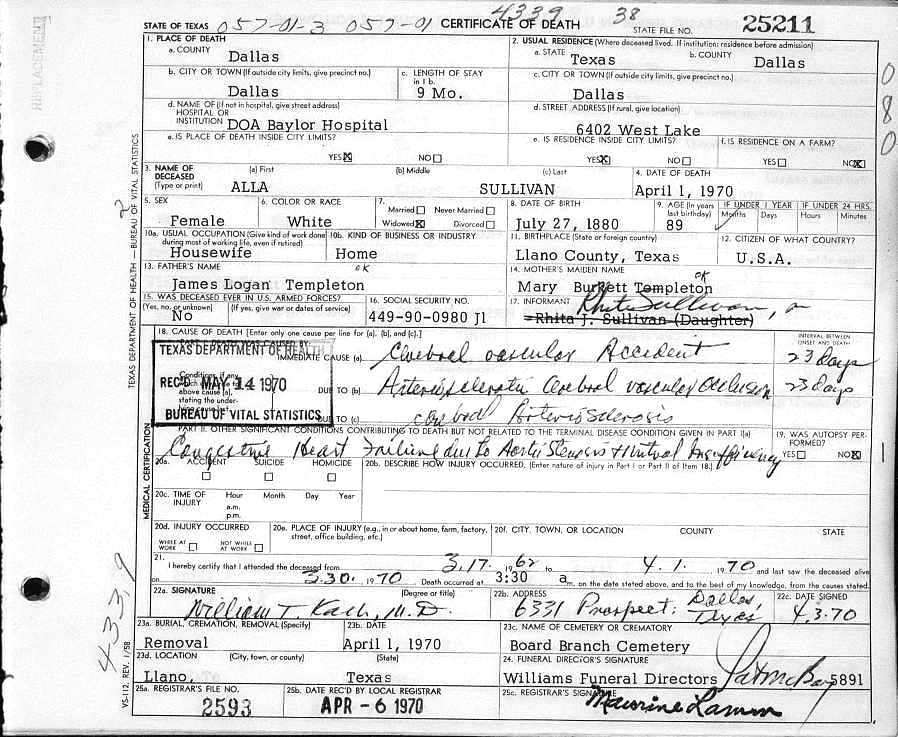 4339 38
STATE OF TEXAS 057-01-3 057-01 CERTIFICATE OF DEATH STATE FILE NO. 25211
REPLACEMENT
080
1. PLACE OF DEATH
a. COUNTY
Dallas
2. USUAL RESIDENCE (Where deceased lived. If institution: residence before admission)
a. STATE b. COUNTY
Texas Dallas
b. CITY OR TOWN (If outside city limits, give precinct no.)
Dallas
c. LENGTH OF STAY in 1 b.
9 Mo.
c. CITY OR TOWN (If outside city limits, give precinct no.)
Dallas
d. NAME OF (If not in hospital, give street address)
HOSPITAL OR
INSTITUTION DOA Baylor Hospital
d. STREET ADDRESS (If rural, give location)
6402 West Lake
e. IS PLACE OF DEATH INSIDE CITY LIMITS?
YES☒ NO☐
e. IS RESIDENCE INSIDE CITY LIMITS?
YES☒ NO☐
f. IS RESIDENCE ON A FARM?
YES☐ NO☒
3. NAME OF DECEASED (Type or print)
(a) First (b) Middle (c) Last
ALLA SULLIVAN
4. DATE OF DEATH
April 1, 1970
5. SEX
Female
6. COLOR OR RACE
White
7.
Married☐ Never Married☐
Widowed☒ Divorced☐
8. DATE OF BIRTH
July 27, 1880
9. AGE (In years last birthday)
89
IF UNDER 1 YEAR IF UNDER 24 HRS.
Months Days Hours Minutes
10a. USUAL OCCUPATION (Give kind of work done during most of working life, even if retired)
Housewife
10b. KIND OF BUSINESS OR INDUSTRY
Home
11. BIRTHPLACE (State or foreign country)
Llano County, Texas
12. CITIZEN OF WHAT COUNTRY?
U.S.A.
13. FATHER'S NAME
OK
James Logan Templeton
14. MOTHER'S MAIDEN NAME
OK
Mary Burkett Templeton
15. WAS DECEASED EVER IN U.S. ARMED FORCES?
(Yes, no, or unknown) (If yes, give war or dates of service)
No
16. SOCIAL SECURITY NO.
449-90-0980 J1
17. INFORMANT Rhita Sullivan,
Rhita J. Sullivan (Daughter)
18. CAUSE OF DEATH [Enter only one cause per line for (a), (b), and (c).]
INTERVAL BETWEEN ONSET AND DEATH
PART I. DEATH WAS CAUSED BY:
IMMEDIATE CAUSE (a) Cerebral vascular Accident 23 days
Conditions, if any, which gave rise to above cause (a), stating the underlying cause last
DUE TO (b) Arteriosclerotic Cerebral vascular Occlusion 23 days
DUE TO (c) Cerebral Arteriosclerosis
TEXAS DEPARTMENT OF HEALTH
REC'D MAY 14 1970
BUREAU OF VITAL STATISTICS
PART II. OTHER SIGNIFICANT CONDITIONS CONTRIBUTING TO DEATH BUT NOT RELATED TO THE TERMINAL DISEASE CONDITION GIVEN IN PART I(a)
Congestive Heart Failure due to Aortic Stenosis + Mitral Insufficiency
19. WAS AUTOPSY PERFORMED?
YES☐ NO☒
20a. ACCIDENT SUICIDE HOMICIDE
☐ ☐ ☐
20b. DESCRIBE HOW INJURY OCCURRED. (Enter nature of injury in Part I or Part II of Item 18.)
20c. TIME OF INJURY
Hour Month Day Year
a.m.
p.m.
20d. INJURY OCCURRED
WHILE AT WORK ☐ NOT WHILE AT WORK ☐
20e. PLACE OF INJURY (e.g., in or about home, farm, factory, street, office building, etc.)
20f. CITY, TOWN, OR LOCATION COUNTY STATE
21.
I hereby certify that I attended the deceased from 3.17. 1962 to 4.1. 1970 and last saw the deceased alive
on 3.30. 1970. Death occurred at 3:30 a.m. on the date stated above, and to the best of my knowledge, from the causes stated.
22a. SIGNATURE (Degree or title)
William T. M.D.
22b. ADDRESS
6331 Prospect: Dallas, Texas
22c. DATE SIGNED
4.3.70
23a. BURIAL, CREMATION, REMOVAL (Specify)
Removal
23b. DATE
April 1, 1970
23c. NAME OF CEMETERY OR CREMATORY
Board Branch Cemetery
23d. LOCATION (City, town, or county) (State)
Llano, Texas
24. FUNERAL DIRECTOR'S SIGNATURE
Williams Funeral Directors 5891
25a. REGISTRAR'S FILE NO.
2593
25b. DATE REC'D BY LOCAL REGISTRAR
APR - 6 1970
25c. REGISTRAR'S SIGNATURE
Maurine
TEXAS DEPARTMENT OF HEALTH — BUREAU OF VITAL STATISTICS
MEDICAL CERTIFICATION
VS-112, REV. 1/58
433.9